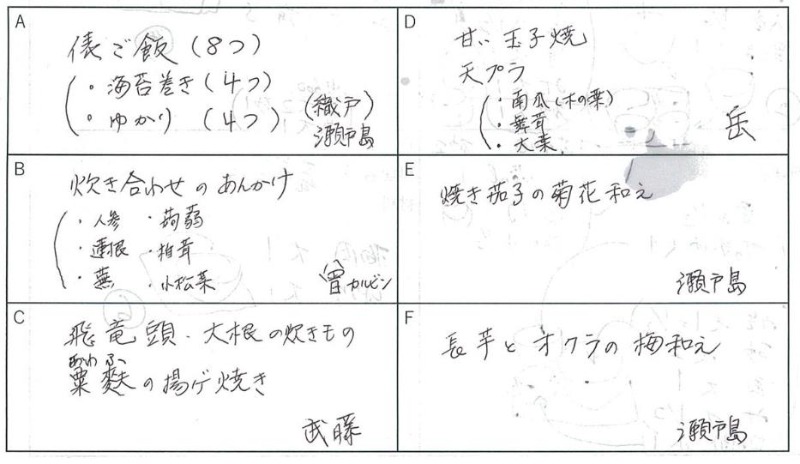 A
俵ご飯(8つ)
・海苔巻き(4つ)
・ゆかり(4つ)
(織戸)
瀬戸島
B
炊き合わせのあんかけ
・人参 ・蒟蒻
・蓮根 ・椎茸
・蕪 ・小松菜
曾カルビン
C
飛竜頭・大根の炊きもの
あわ ふ
粟麩の揚げ焼き
武藤
D
甘い玉子焼
天プラ
・南瓜(木の葉)
・舞茸
・大葉
岳
E
焼き茄子の菊花和え
瀬戸島
F
長芋とオクラの梅和え
瀬戸島